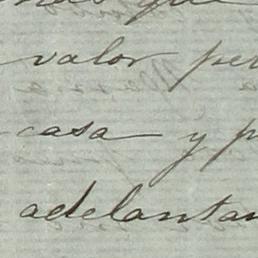 que
valor per
casa y p
adelantan